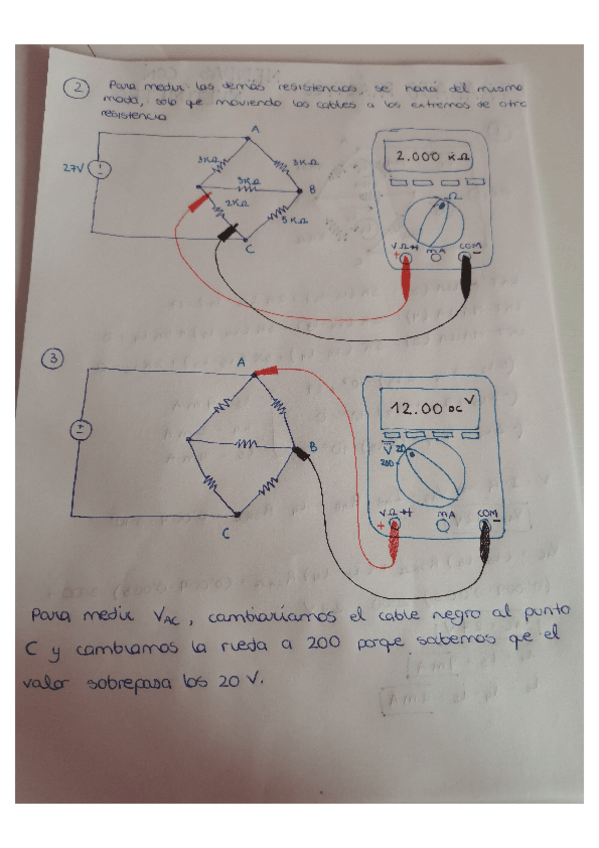 2 Para medir las demás resistencias, se hará del mismo
modo, solo que moviendo los cables a los extremos de otra
resistencia
A
27V
3KΩ
3KΩ
3KΩ
B
2KΩ
5KΩ
C
2.000 kΩ
Ω
VΩ
mA
COM
+
-
3
A
B
C
12.00 DC V
V 20
200
VΩ
mA
COM
+
-
Para medir VAC, cambiaríamos el cable negro al punto
C y cambiamos la rueda a 200 porque sabemos que el
valor sobrepasa los 20 V.